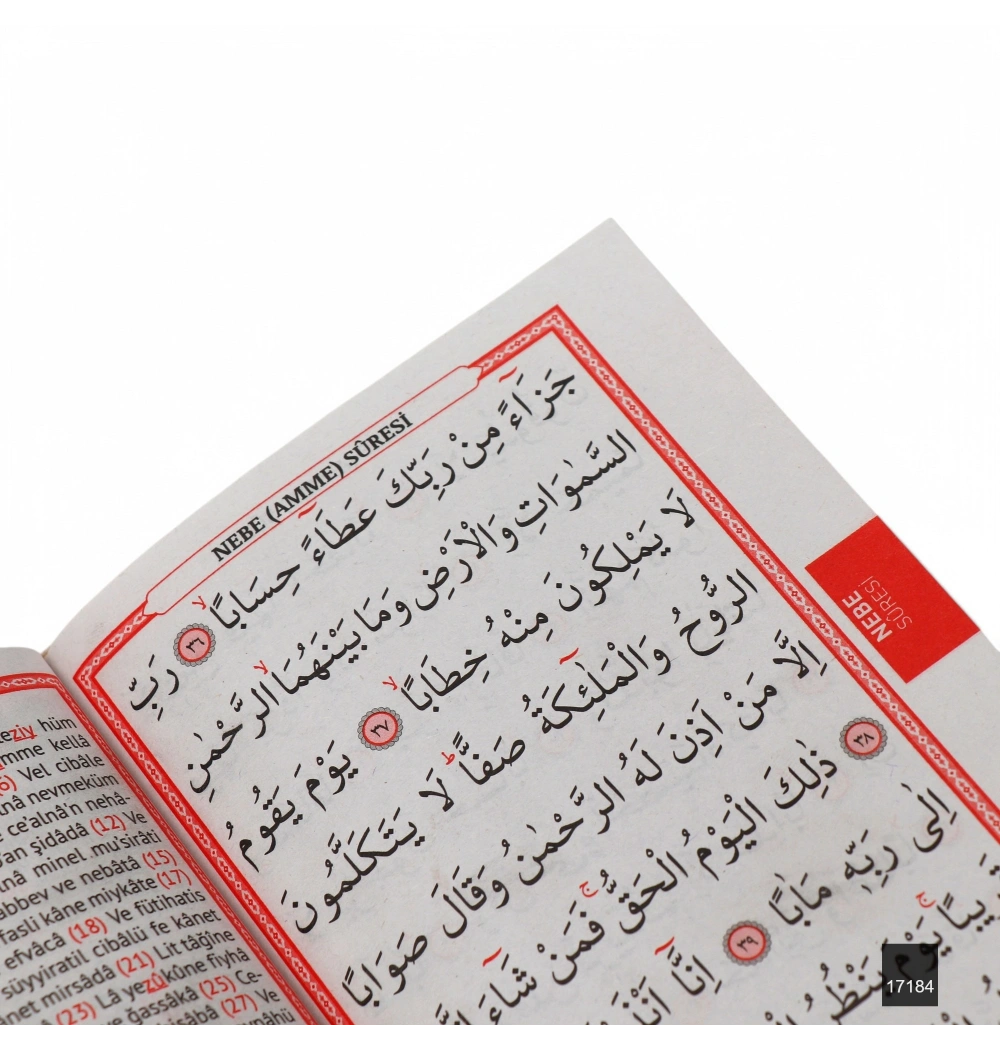 NEBE (AMME) SÛRESİ
جَزَٓاءً مِنْ رَبِّكَ عَطَٓاءً حِسَابًاۙ ﴿٣٦﴾ رَبِّ
السَّمٰوَاتِ وَالْاَرْضِ وَمَا بَيْنَهُمَا الرَّحْمٰنِ
لَا يَمْلِكُونَ مِنْهُ خِطَابًاۙ ﴿٣٧﴾ يَوْمَ يَقُومُ
الرُّوحُ وَالْمَلٰٓئِكَةُ صَفًّاۜ لَا يَتَكَلَّمُونَ
اِلَّا مَنْ اَذِنَ لَهُ الرَّحْمٰنُ وَقَالَ صَوَابًا
﴿٣٨﴾ ذٰلِكَ الْيَوْمُ الْحَقُّۚ فَمَنْ شَٓاءَ
اِلٰى رَبِّه۪ مَاٰبًا ﴿٣٩﴾ اِنَّٓا
يَوْمَ يَنْظُرُ
NEBE
SÛRESİ
ziy hüm
mme kellâ
Vel cibâle
nâ nevmeküm
ce'alnâ'n nehâ-
an şidâdâ (12) Ve
nâ minel mu'sirâti
abbev ve nebâtâ (15)
fasli kâne miykâte (17)
efvâcâ (18) Ve fütihatis
süyyiratil cibâlü fe kânet
net mirsâdâ (21) Lit tâğîne
(23) Lâ yezûkûne fiyhâ
ve ğassâkâ (25) Ce-
isâbâ (27) Ve
17184